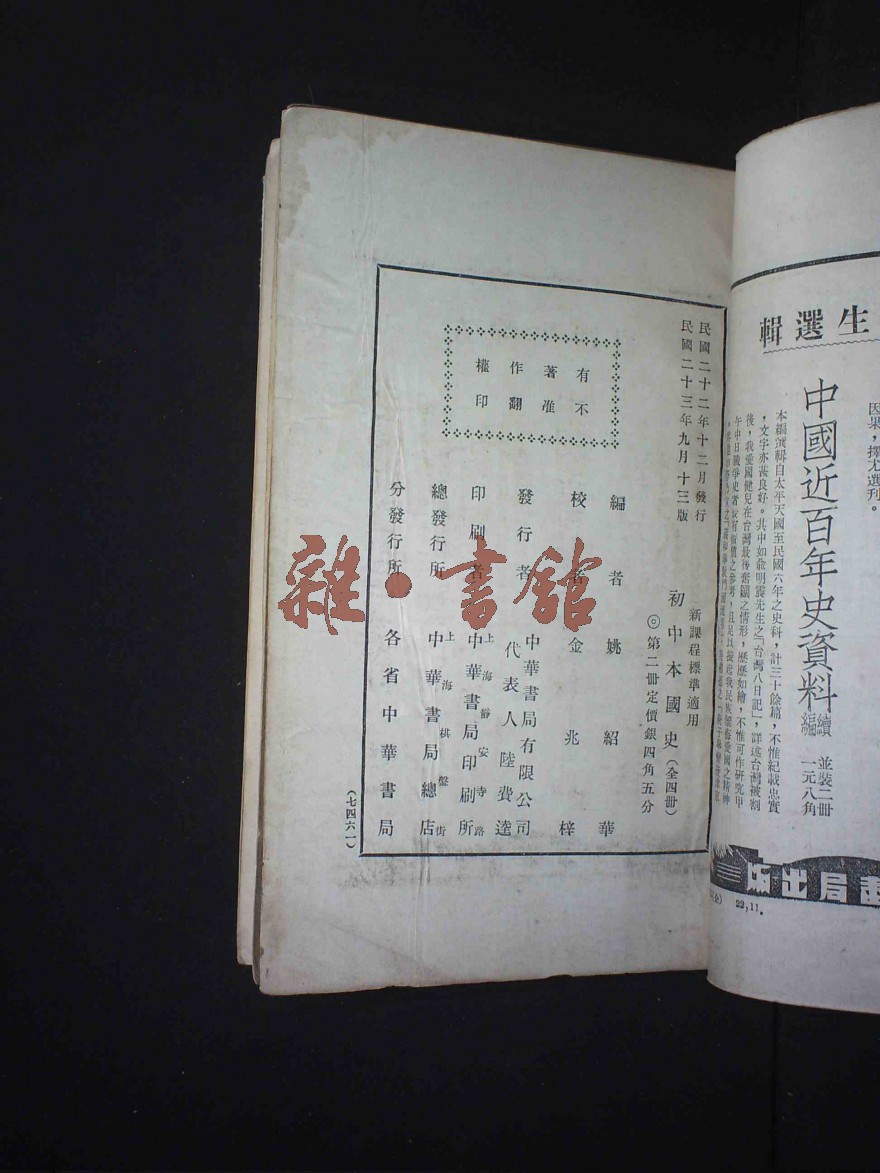 民國二十二年十二月發行
民國二十三年九月十三版
有著作權
不准翻印
新課程標準適用
初中本國史(全四冊)
◎第二冊定價銀四角五分
編者 姚紹華
校者 金兆梓
發行者 中華書局有限公司
代表人 陸費逵
印刷者 上海靜安寺路
中華書局印刷所
總發行所 上海棋盤街
中華書局總店
分發行所 各省中華書局
(七四六一)
雜·書館
生選輯
因果,擇尤選刊。
中國近百年史資料續編
並裝二冊
一元八角
本編選輯自太平天國至民國六年之史料,計三十餘篇,不惟紀載忠實
,文字亦甚良好。其中如俞明震先生之「台灣八日記」,詳述台灣被割
後,我愛國健兒在台灣最後奮鬭之情形,歷歷如繪,不惟可作研究甲
午中日戰爭史者
書局出版
22,11.